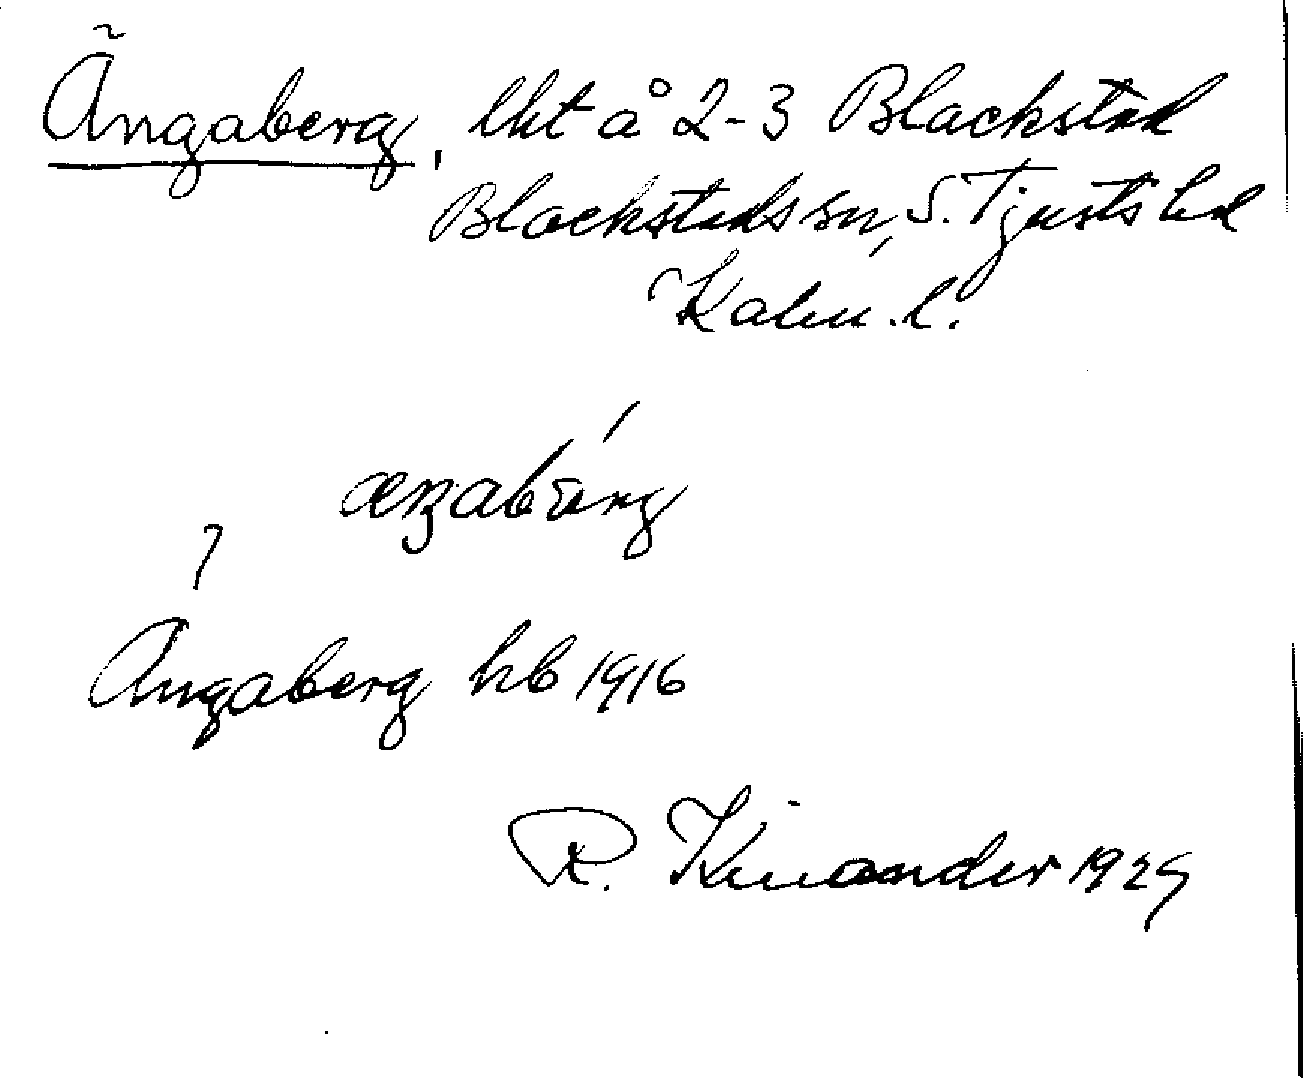 Ängaberg, lht å 2-3 Blackstad
Blackstads sn, S. Tjusts hd
Kalm. l.
Ängaberg hb 1916
R. Kinander 1929